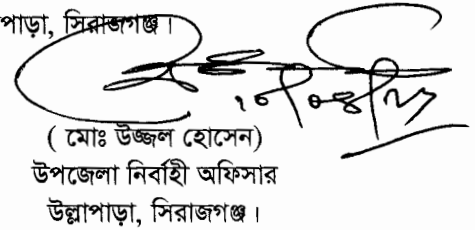 পাড়া, সিরাজগঞ্জ।
( মোঃ উজ্জল হোসেন)
উপজেলা নির্বাহী অফিসার
উল্লাপাড়া, সিরাজগঞ্জ।